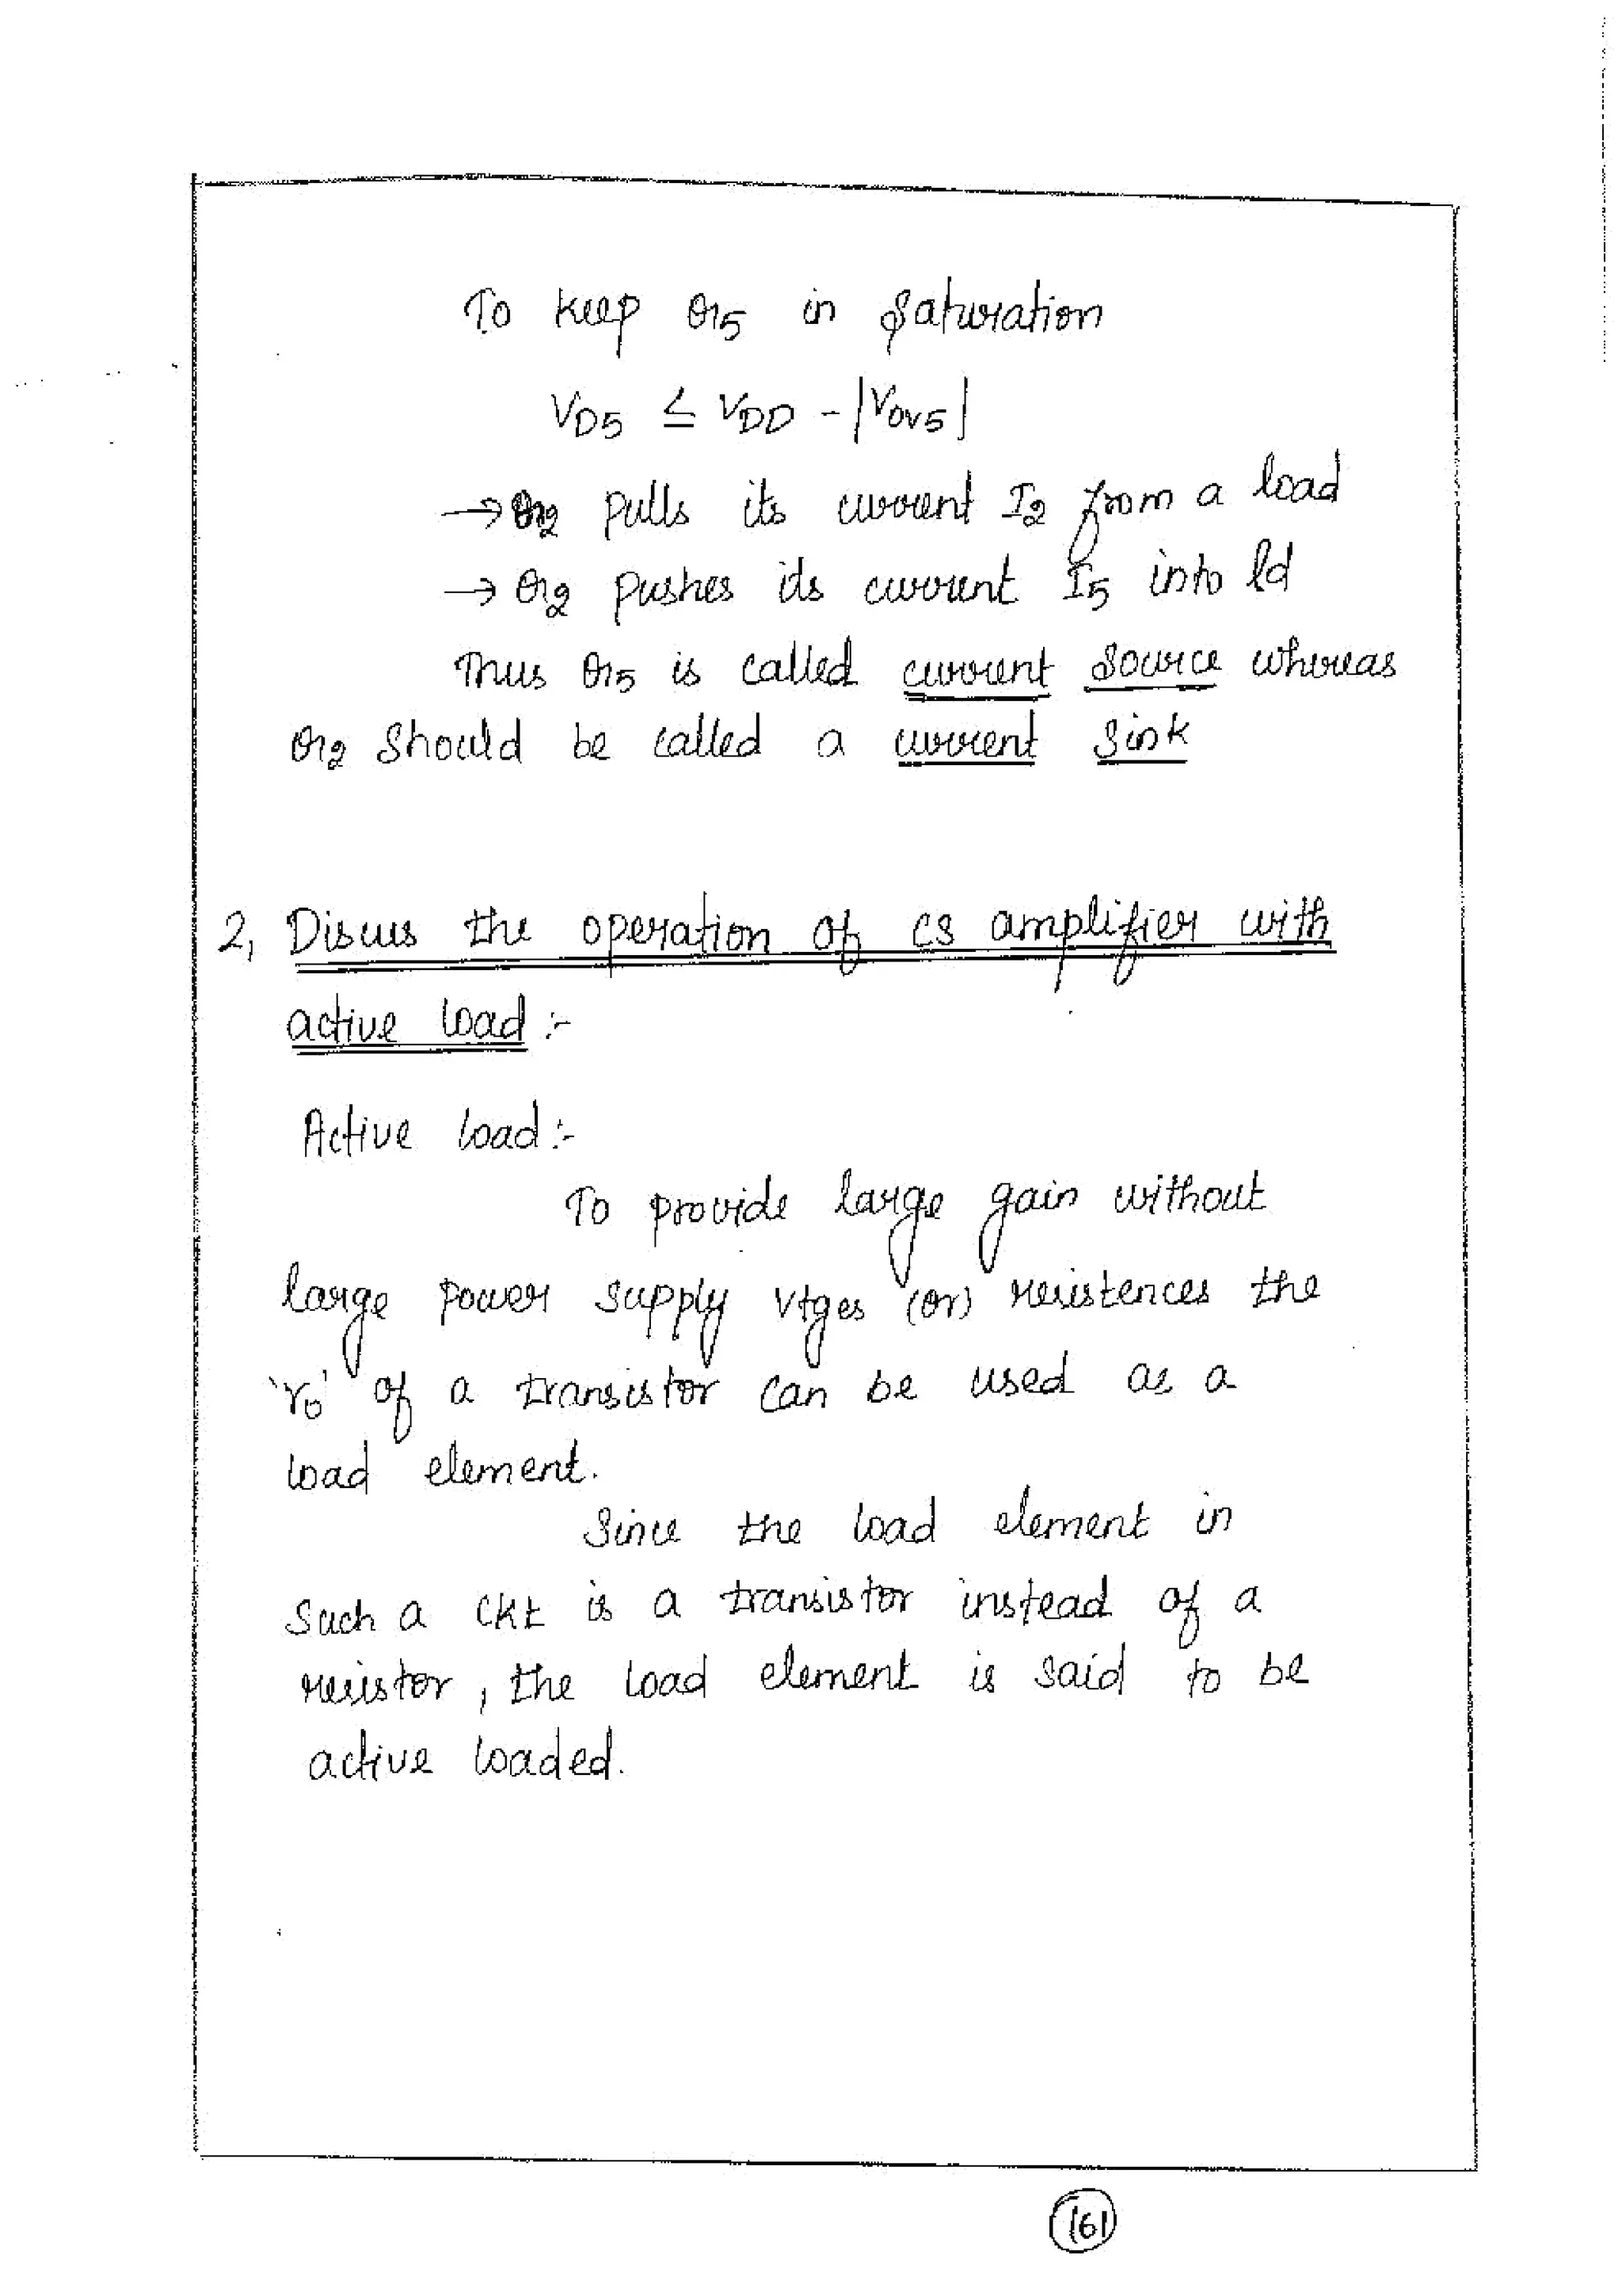 To keep Q5 in saturation
VD5 ≤ VDD - |VOV5|
→ Q2 pulls its current I2 from a load
→ Q2 pushes its current I5 into ld
Thus Q5 is called current source whereas
Q2 should be called a current sink
2, Discuss the operation of CS amplifier with
active load :-
Active load :-
To provide large gain without
large power supply vtges (or) resistences the
'ro' of a transistor can be used as a
load element.
Since the load element in
such a ckt is a transistor instead of a
resistor, the load element is said to be
active loaded.
161